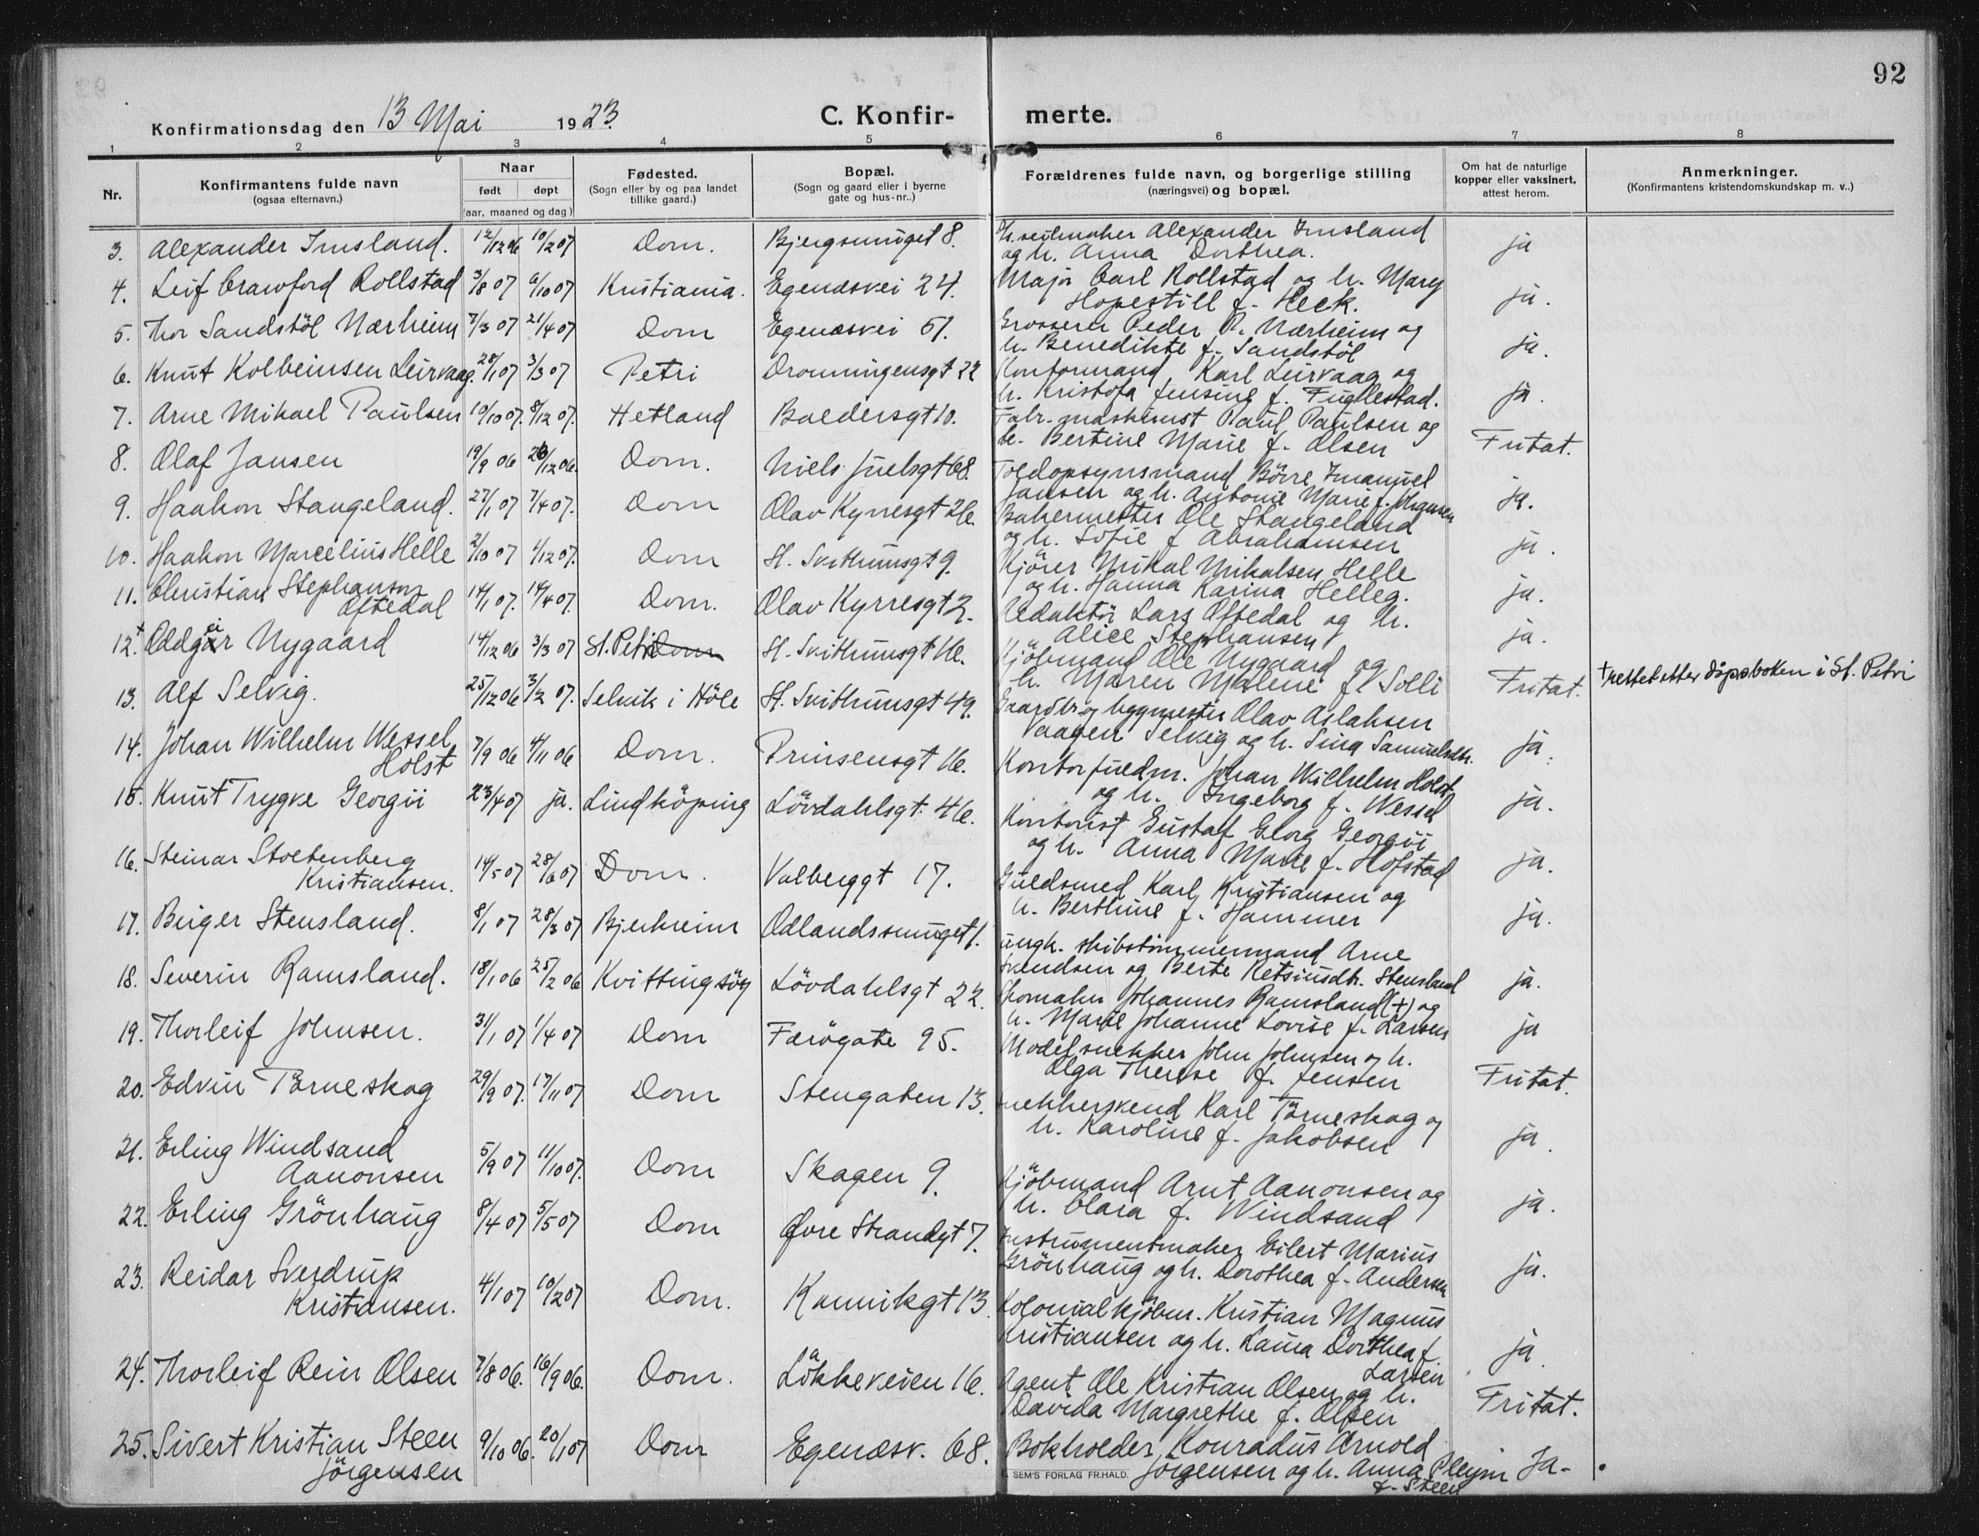 92
Konfirmationsdag den 13 Mai 1923.
C. Konfirmerte.
1 2 3 4 5 6 7 8
Nr.
Konfirmantens fulde navn
(ogsaa efternavn.)
Naar
født døpt
(aar, maaned og dag)
Fødested.
(Sogn eller by og paa landet
tillike gaard.)
Bopæl.
(Sogn og gaard eller i byerne
gate og hus-nr..)
Forældrenes fulde navn, og borgerlige stilling
(næringsvei) og bopæl.
Om hat de naturlige
kopper eller vaksinert,
attest herom.
Anmerkninger.
(Konfirmantens kristendomskundskap m. v..)
3. Alexander Imsland. 12/12 06 10/2 07 Dom. Bjergsmuget 8.
Alexander Imsland
og h. Anna Dorthea. ja
4. Leif Crawford Rollstad 3/8 07 6/10 07 Kristiania. Egenæsvei 24.
Major Carl Rollstad og h. Mary
Hopestill f. Heck. ja.
5. Thor Sandstöl Nærheim 7/3 07 21/4 07 Dom Egenæsvei 51.
Grosserer Peder R. Nærheim og
h. Benedikte f. Sandstöl ja.
6. Knut Kolbeinsen Leirvaag. 28/1 07 3/3 07 Petri Dronningensgt 22
Kontormand Karl Leirvaag og
h. Kristofa Jensine f. Fuglestad. ja.
7. Arne Mikael Paulsen 10/10 07. 8/12 07. Hetland Baldersgt 10.
Fabr. maskinist Paul Paulsen og
h. Bertine Marie f. Olsen Fritat.
8. Olaf Jansen 19/9 06 26/12 06. Dom. Niels Juelsgt 68.
Toldopsynsmand Börre Imanuel
Jansen og h. Antonie Marie f. Mognsen ja.
9. Haakon Stangeland. 27/1 07 7/4 07. Dom Olav Kyrresgt 26.
Bakermester Ole Stangeland
og h. Sofie f Abrahamsen ja.
10. Haakon Marcelius Helle 2/10 07 1/12 07. Dom St. Svithunsgt 9.
Kjörer Mikal Mikalsen Helle
og h. Hanna Karina Helleg. ja.
11. Christian Stephansen
Oftedal 14/1 07. 14/4 07. Dom. Olav Kyrresgt 2.
Redaktör Lars Oftedal og h.
Alice Stephansen ja.
12.+ Oddgeir Nygaard 14/12 06 3/3 07 St. Petri Dom St. Svithunsgt 16.
Kjöbmand Ole Nygaard og
h. Maren Malene f. Solli Fritat. + rettet etter dåpsboken i St. Petri
13. Alf Selvig. 25/12 06 3/2 07. Selvik i Höle St. Svithunsgt 49.
Gaardbr. og bygmester Olav Aslaksen
Vaagen Selvig og h. Sina Samuelsdtr. ja.
14. Johan Wilhelm Wessel
Holst 7/9 06 4/11 06 Dom. Prinsensgt 16.
Kontorfuldm. Johan Wilhelm Holst
og h. Ingeborg f. Wessel ja.
15. Knut Trygve Georgii 23/4 07 ja. Lindköping Lövdahlsgt. 46.
Kontorist Gustaf Georg Georgii
og h. Anna Marie f. Hofstad ja.
16. Steinar Stoltenberg
Kristiansen. 14/5 07 28/6 07 Dom. Valberggt 17.
Guldsmed Karl Kristiansen og
h. Berthine f. Hammer ja.
17. Birger Stensland. 8/1 07 28/3 07 Bjerkreim Odlandssmuget 1.
ungk. skibstömmermand Arne
Svendsen og Berte Retsiusdtr. Stensland ja.
18. Severin Ramsland. 18/1 06 25/2 06 Kvittingsöy Lövdahlsgt 22.
Skomaker Johannes Ramsland (+) og
h. Marie Johanne Lovise f. Larsen ja
19. Thorleif Johnsen. 31/1 07 1/4 07 Dom Færögate 95.
Modelsnekker John Johnsen og h.
Olga Therese f. Jensen Fritat.
20. Edvin Törneskog 29/9 07. 17/11 07 Dom Stengaten 13.
Snekkersvend Karl Törneskog og
h. Karoline f. Jakobsen ja.
21. Erling Windsand
Aanonsen 5/9 07 11/10 07. Dom Skagen 9.
Kjöbmand Arnt Aanonsen og
h. Clara f. Windsand ja.
22. Erling Grönhaug 8/4 07 5/5 07 Dom Øvre Strandgt 7.
Instrumentmaker Eilert Marius
Grönhaug og h. Dorothea f. Andersen ja.
23. Reidar Sverdrup
Kristiansen. 4/1 07 10/2 07 Dom. Kannikgt 13
Kolonialkjöbm. Kristian Magnus
Kristiansen og h. Laura Dorthea f.
Larsen ja
24. Thorleif Rein Olsen 7/8 06. 16/9 06. Dom. Lökkeveien 16.
Agent Ole Kristian Olsen og h.
Davida Margrethe f. Olsen Fritat.
25. Sivert Kristian Steen
Jörgensen 9/10 06. 20/1 07 Dom Egenæsv. 68.
Bokholder Konradus Arnold
Jörgensen og h. Anna Pleym
f. Steen Ja-
SEM'S FORLAG FR.HALD.